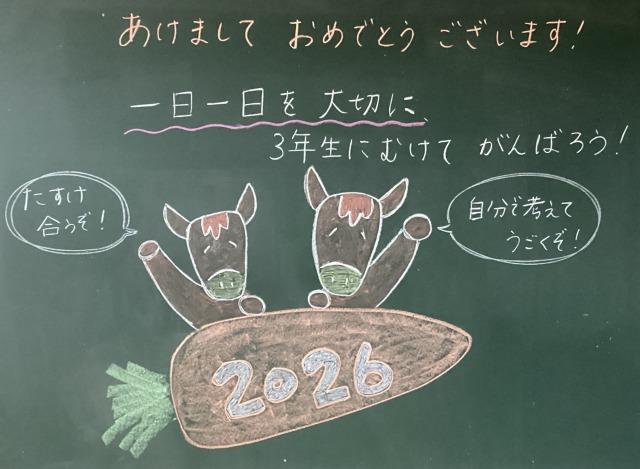 あけまして おめでとう ございます!
一日一日を 大切に、
3年生にむけて がんばろう!
たすけ
合うぞ!
自分で考えて
うごくぞ!
2026